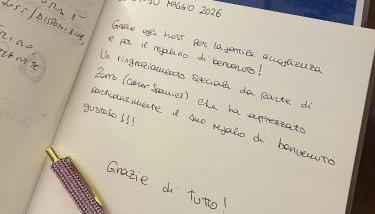 MAGGIO 2026
Grazie agli host per la gentile accoglienza
e per il regalino di benvenuto!
Un ringraziamento speciale da parte di
Zorro (Cocker Spaniel) che ha apprezzato
particolarmente il suo regalo di benvenuto
gustoso!!!
Grazie di tutto!